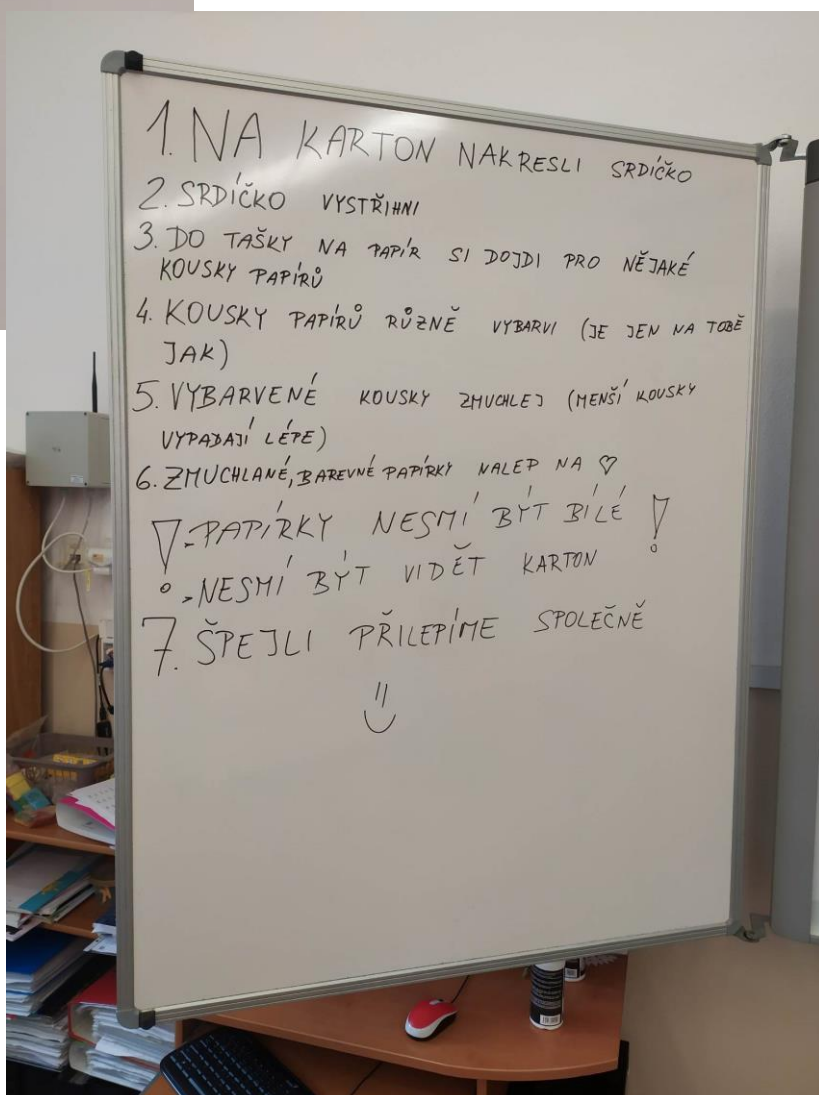 1. NA KARTON NAKRESLI SRDÍČKO
2. SRDÍČKO VYSTŘIHNI
3. DO TAŠKY NA PAPÍR SI DOJDI PRO NĚJAKÉ
KOUSKY PAPÍRŮ
4. KOUSKY PAPÍRŮ RŮZNĚ VYBARVI (JE JEN NA TOBĚ
JAK)
5. VYBARVENÉ KOUSKY ZMUCHLEJ (MENŠÍ KOUSKY
VYPADAJÍ LÉPE)
6. ZMUCHLANÉ, BAREVNÉ PAPÍRKY NALEP NA ♡
! - PAPÍRKY NESMÍ BÝT BÍLÉ !
- NESMÍ BÝT VIDĚT KARTON
7. ŠPEJLI PŘILEPÍME SPOLEČNĚ